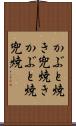 かぶと焼
き兜焼き
かぶと焼
兜焼